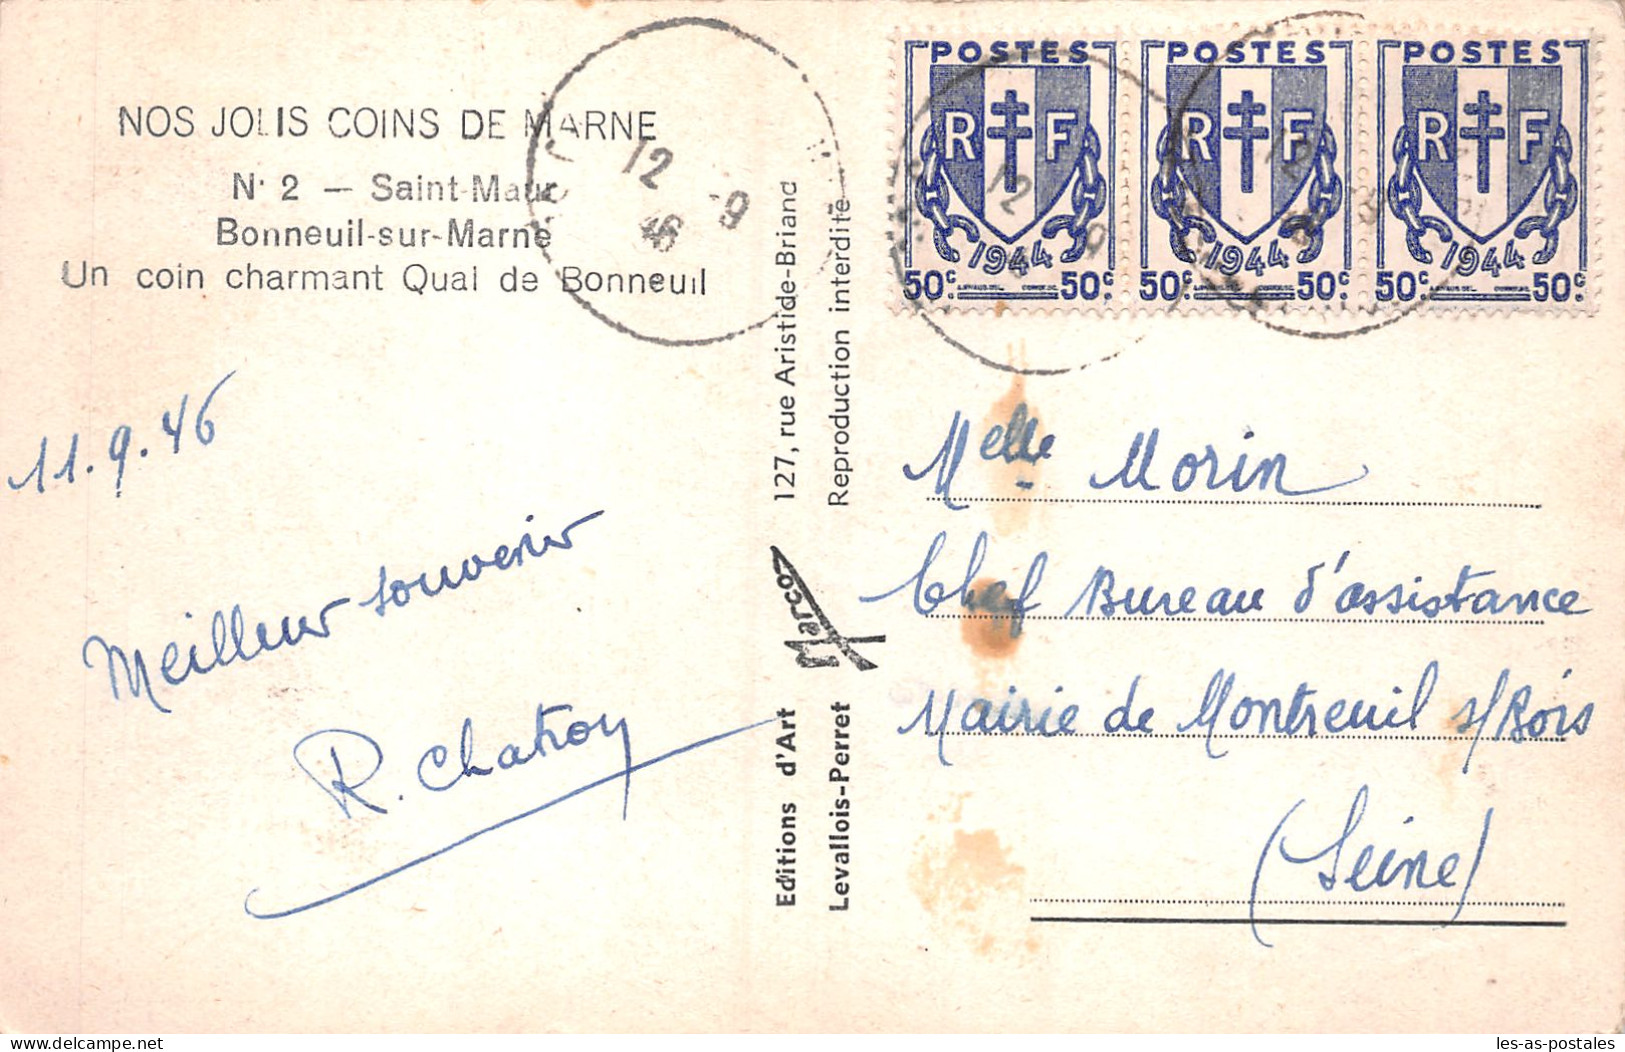 NOS JOLIS COINS DE MARNE
N° 2 — Saint-Maur
Bonneuil-sur-Marne
Un coin charmant Quai de Bonneuil
12 -9
46
11.9.46
Meilleur souvenir
R. Chatroy
Editions d'Art Marco 127, rue Aristide-Briand
Levallois-Perret Reproduction interdite
POSTES POSTES POSTES
RF RF RF
1944 1944 1944
50c 50c 50c 50c 50c 50c
12 9
12
Melle Morin
Chef Bureau d'assistance
Mairie de Montreuil s/Bois
(Seine)
les-as-postales